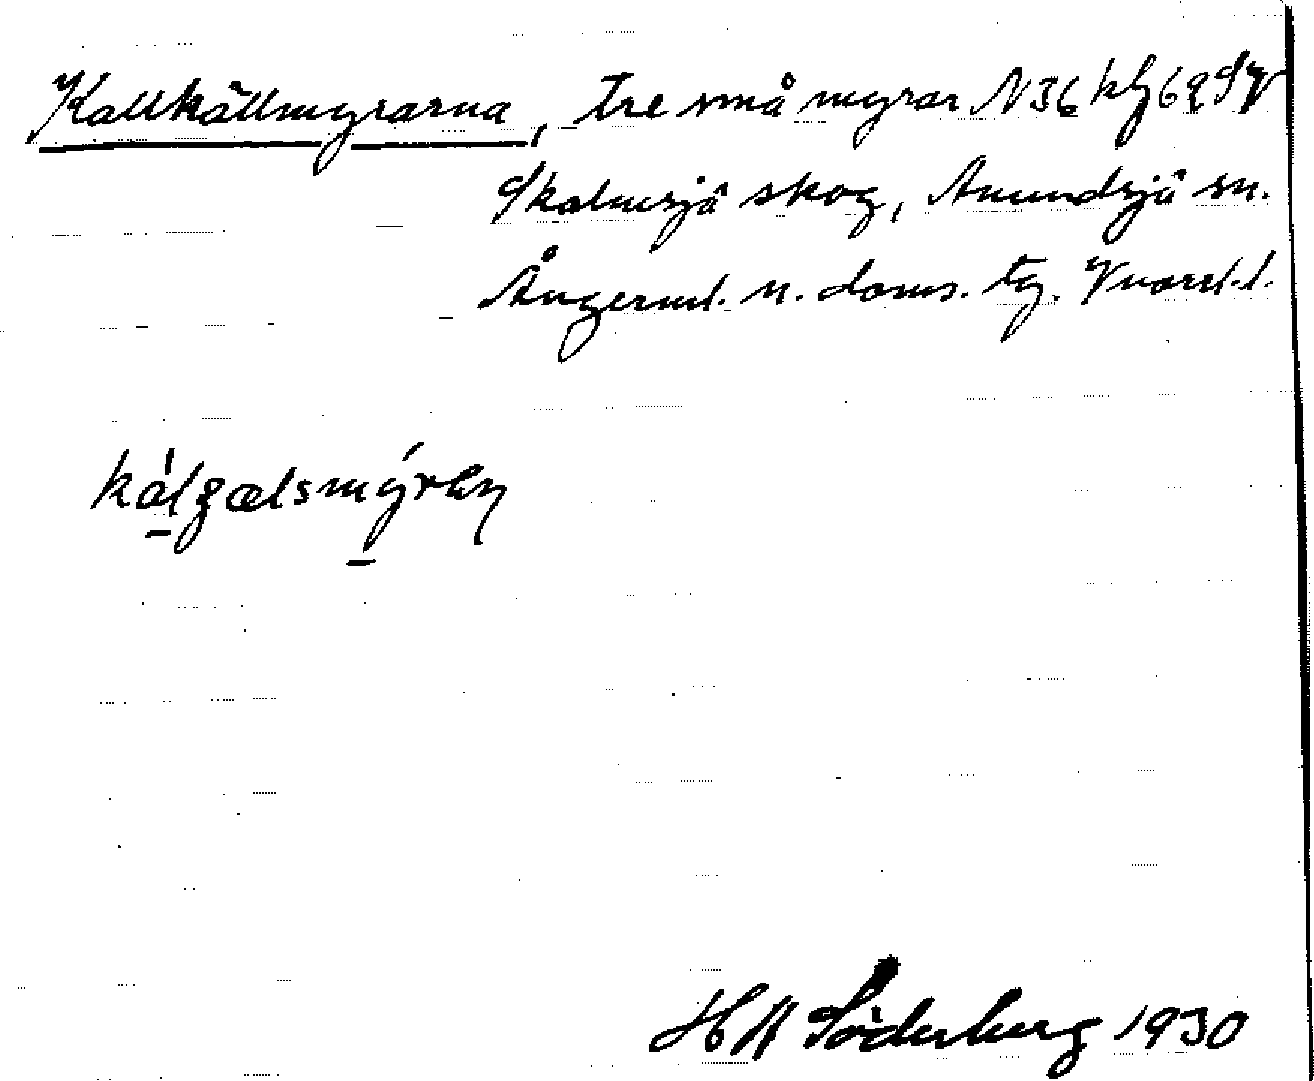 Kallkällmyrarna, tre små myrar N 36
Skalmsjö skog, Anundsjö sn.
Ångerml. n. doms. tg. Vnorrl. l.
kálgælsmýrən
HA Söderberg 1930